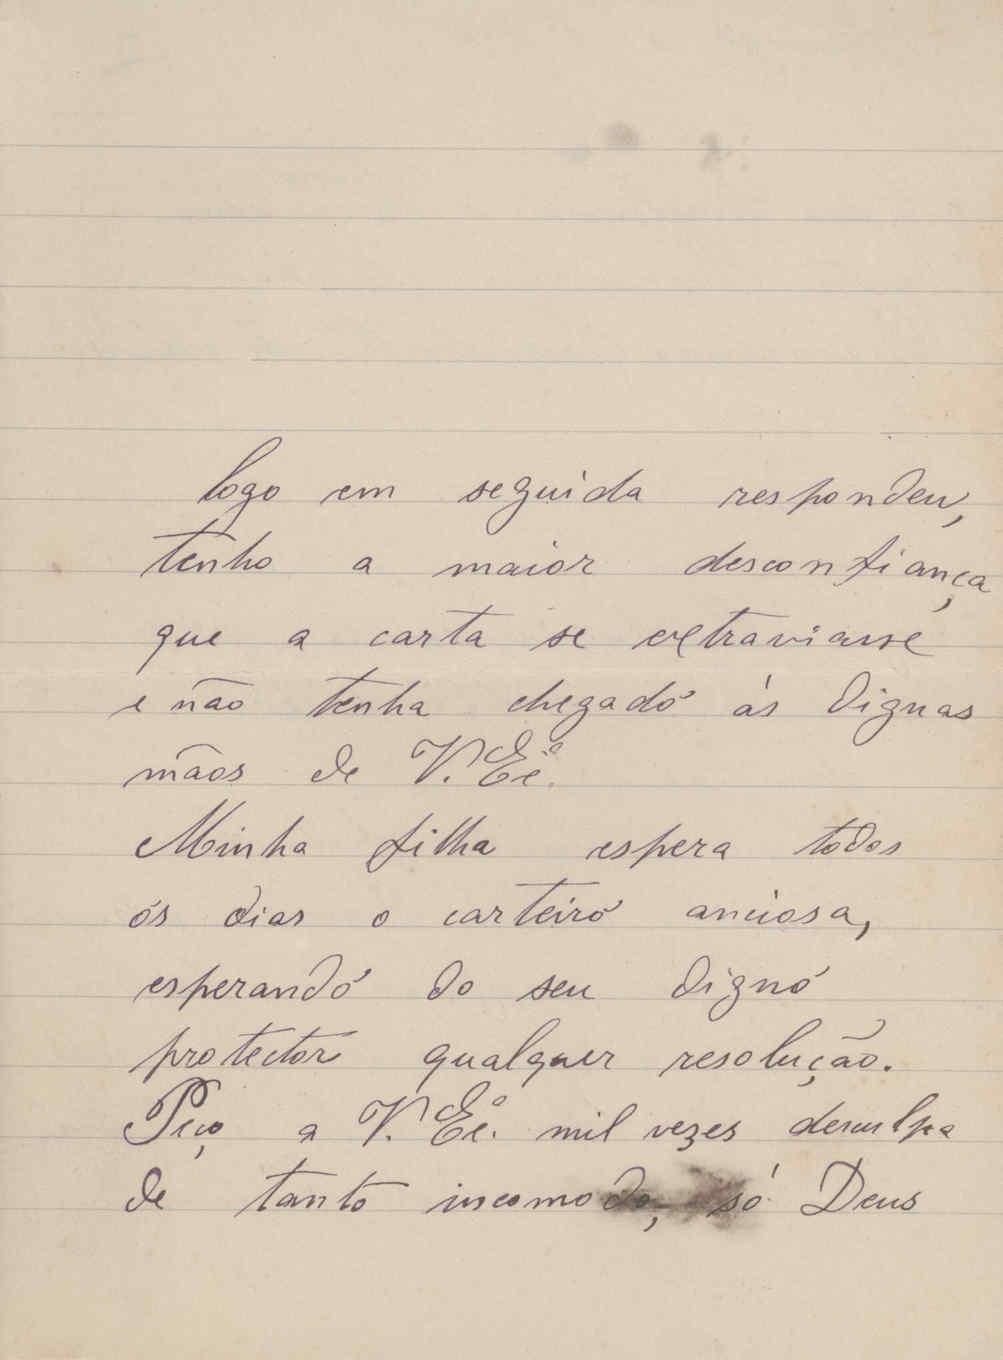 logo em seguida respondeu,
tenho a maior desconfiança
que a carta se extraviasse
e não tenha chegadó ás dignas
mãos de V. Exª.
Minha filha espera todos
ós dias o carteiró anciosa,
esperandó do seu dignó
protector qualquer resolução.
Peço a V. Exª. mil vezes desculpa
de tanto incomodo, só Deus